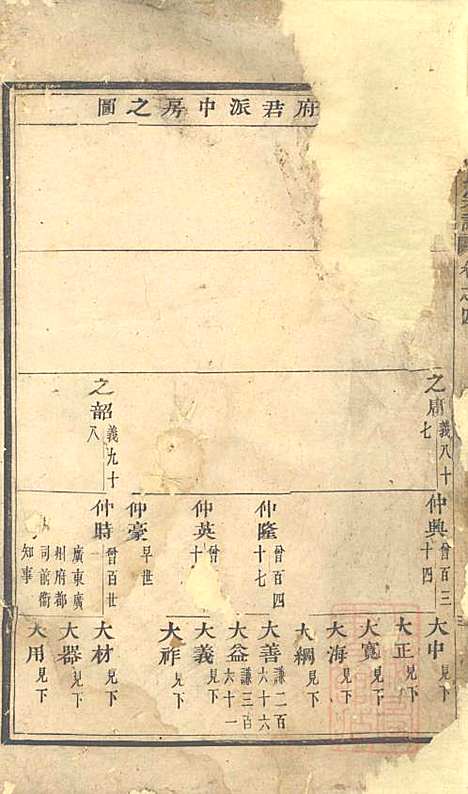 府君派中房之圖
卷之四
之庸 義八十七
之韶 義九十八
仲興 曾百三十四
仲隆 曾百四十七
仲英 曾十
仲豪 早世
仲時 曾百世一
廣東廣州府都司前衛知事
大中 見下
大正 見下
大寬 見下
大海 見下
大綱 見下
大善 謙二百六十六
大益 謙三百六十一
大義 見下
大祚 見下
大材 見下
大器 見下
大用 見下